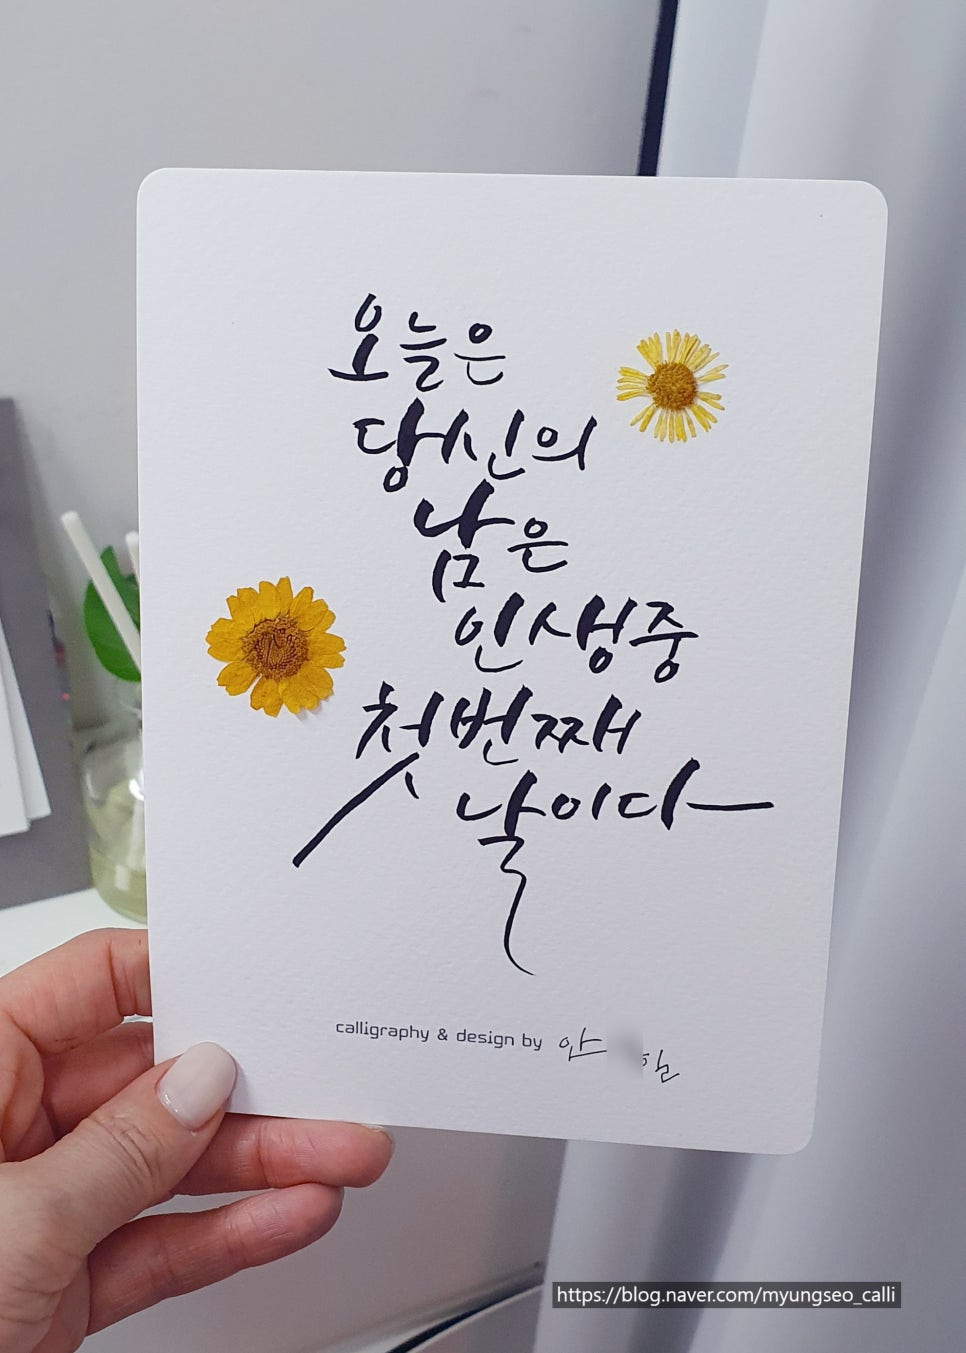 오늘은
당신의
남은
인생중
첫번째
날이다
calligraphy & design by 안
https://blog.naver.com/myungseo_calli